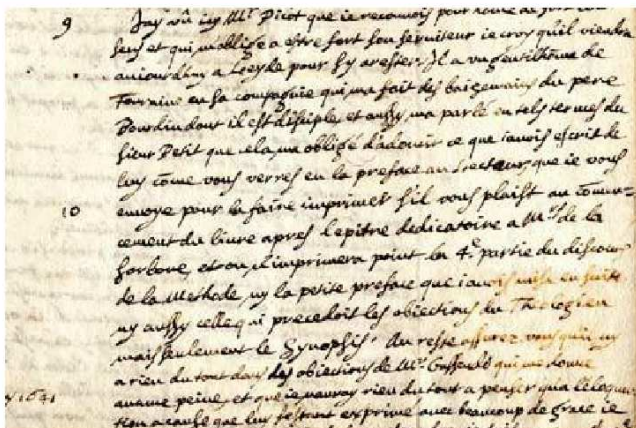 9 Jay vû icy Mr. Picot que ie recounois pour homme de fort bon
sens et qui m'oblige a estre fort son seruiteur ie croy qu'il viendra
auiourdhuy a Leyde pour sy arester. Il a vn gentilhomme de
Touraine en sa compagnie qui ma fait des baisemains du pere
Bourdin dont il est disciple, et aussy ma parlé en tels termes du
sieur Petit que cela ma obligé d'adoucir ce que iauois escrit de
luy come vous verres en la preface au Lecteur que ie vous
10 enuoye pour la faire imprimer s'il vous plaist au comen-
cement du liure apres lepitre dedicatoire a Mrs de la
Sorbone, et on n'imprimera point la 4e partie du discours
de la Methode, ny la petite preface que iauois mise en suite
ny aussy celle qui precedoit les obiections du Theologien
mais seulement le Synopsis. Au reste assurez vous qu'il ny
a rien du tout dans les obiections de Mr. Gassendi qui me donne
aucune peine, et que ie nauray rien du tout a penser qua
1641
a cause que luy sestant exprimé auec beaucoup de grace ie